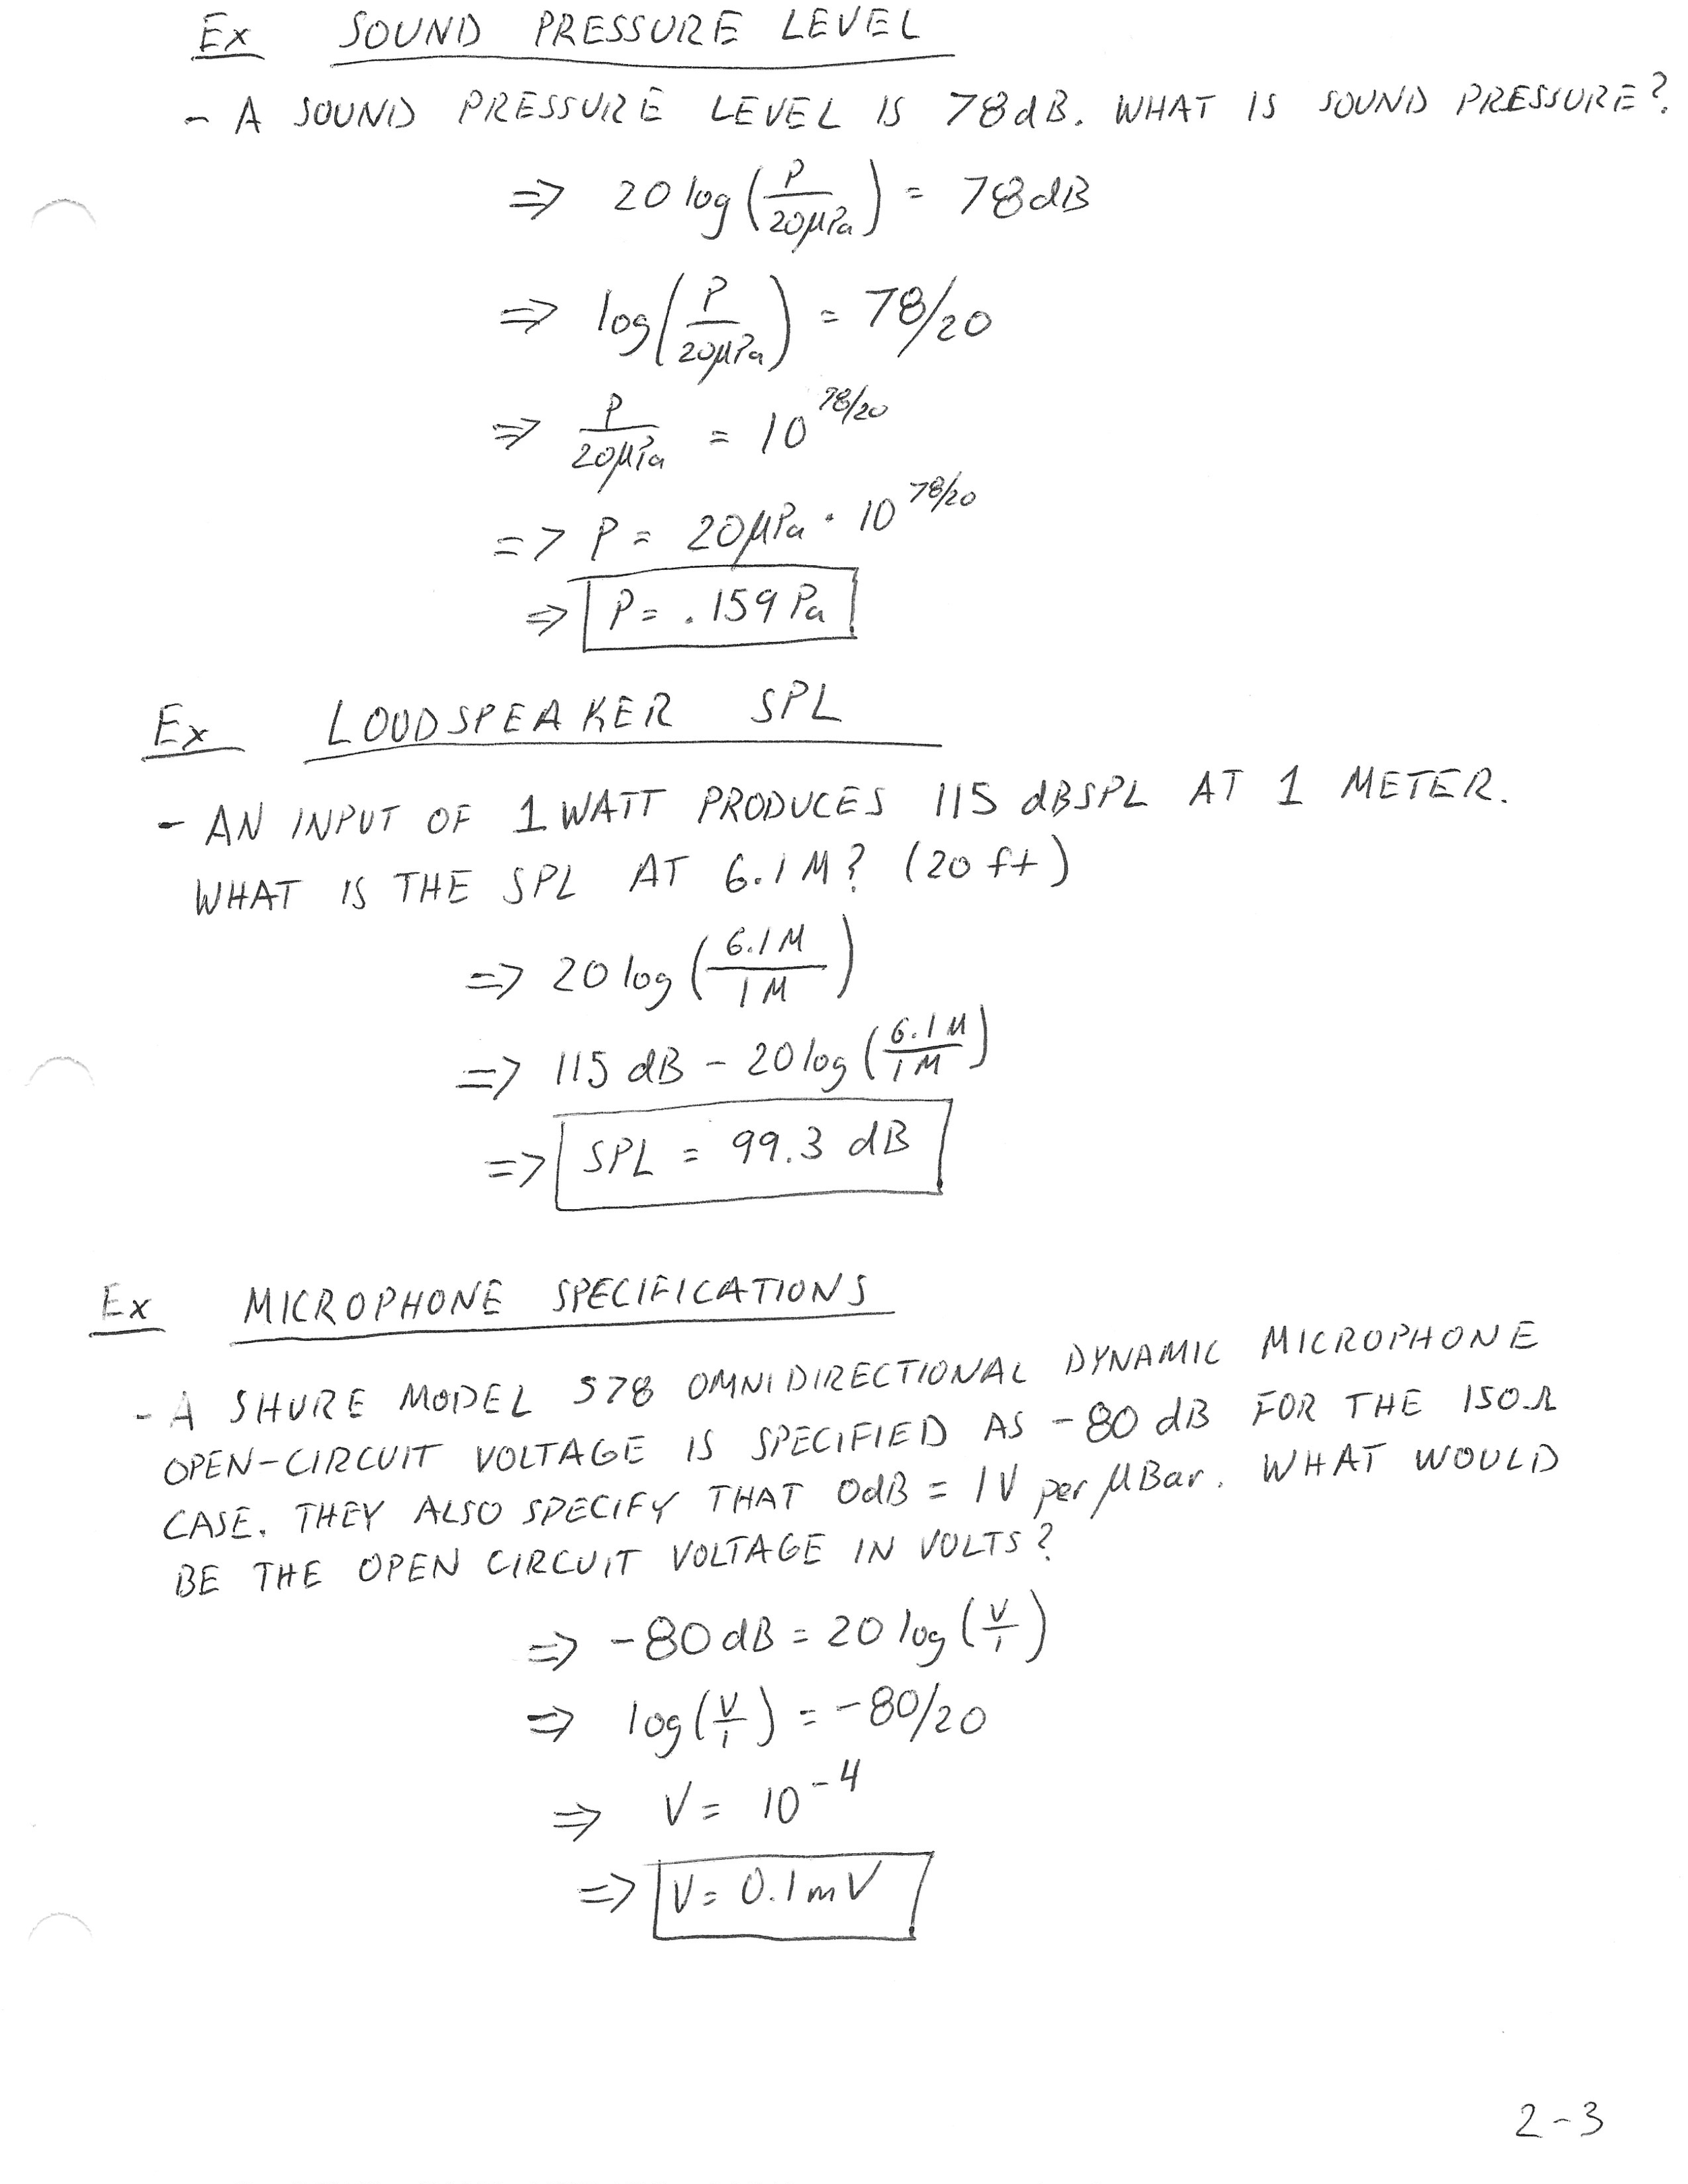 Ex SOUND PRESSURE LEVEL
- A SOUND PRESSURE LEVEL IS 78dB. WHAT IS SOUND PRESSURE?
⇒ 20 log (P/20μPa) = 78dB
⇒ log (P/20μPa) = 78/20
⇒ P/20μPa = 10^78/20
=> P = 20μPa · 10^78/20
⇒ P = .159 Pa
Ex LOUDSPEAKER SPL
- AN INPUT OF 1 WATT PRODUCES 115 dBSPL AT 1 METER.
WHAT IS THE SPL AT 6.1 M? (20 ft)
=> 20 log (6.1M/1M)
=> 115 dB - 20 log (6.1M/1M)
=> SPL = 99.3 dB
Ex MICROPHONE SPECIFICATIONS
- A SHURE MODEL 578 OMNIDIRECTIONAL DYNAMIC MICROPHONE
OPEN-CIRCUIT VOLTAGE IS SPECIFIED AS -80 dB FOR THE 150Ω
CASE. THEY ALSO SPECIFY THAT 0dB = 1V per μBar. WHAT WOULD
BE THE OPEN CIRCUIT VOLTAGE IN VOLTS?
⇒ -80 dB = 20 log (V/1)
⇒ log (V/1) = -80/20
⇒ V = 10^-4
⇒ V = 0.1mV
2-3